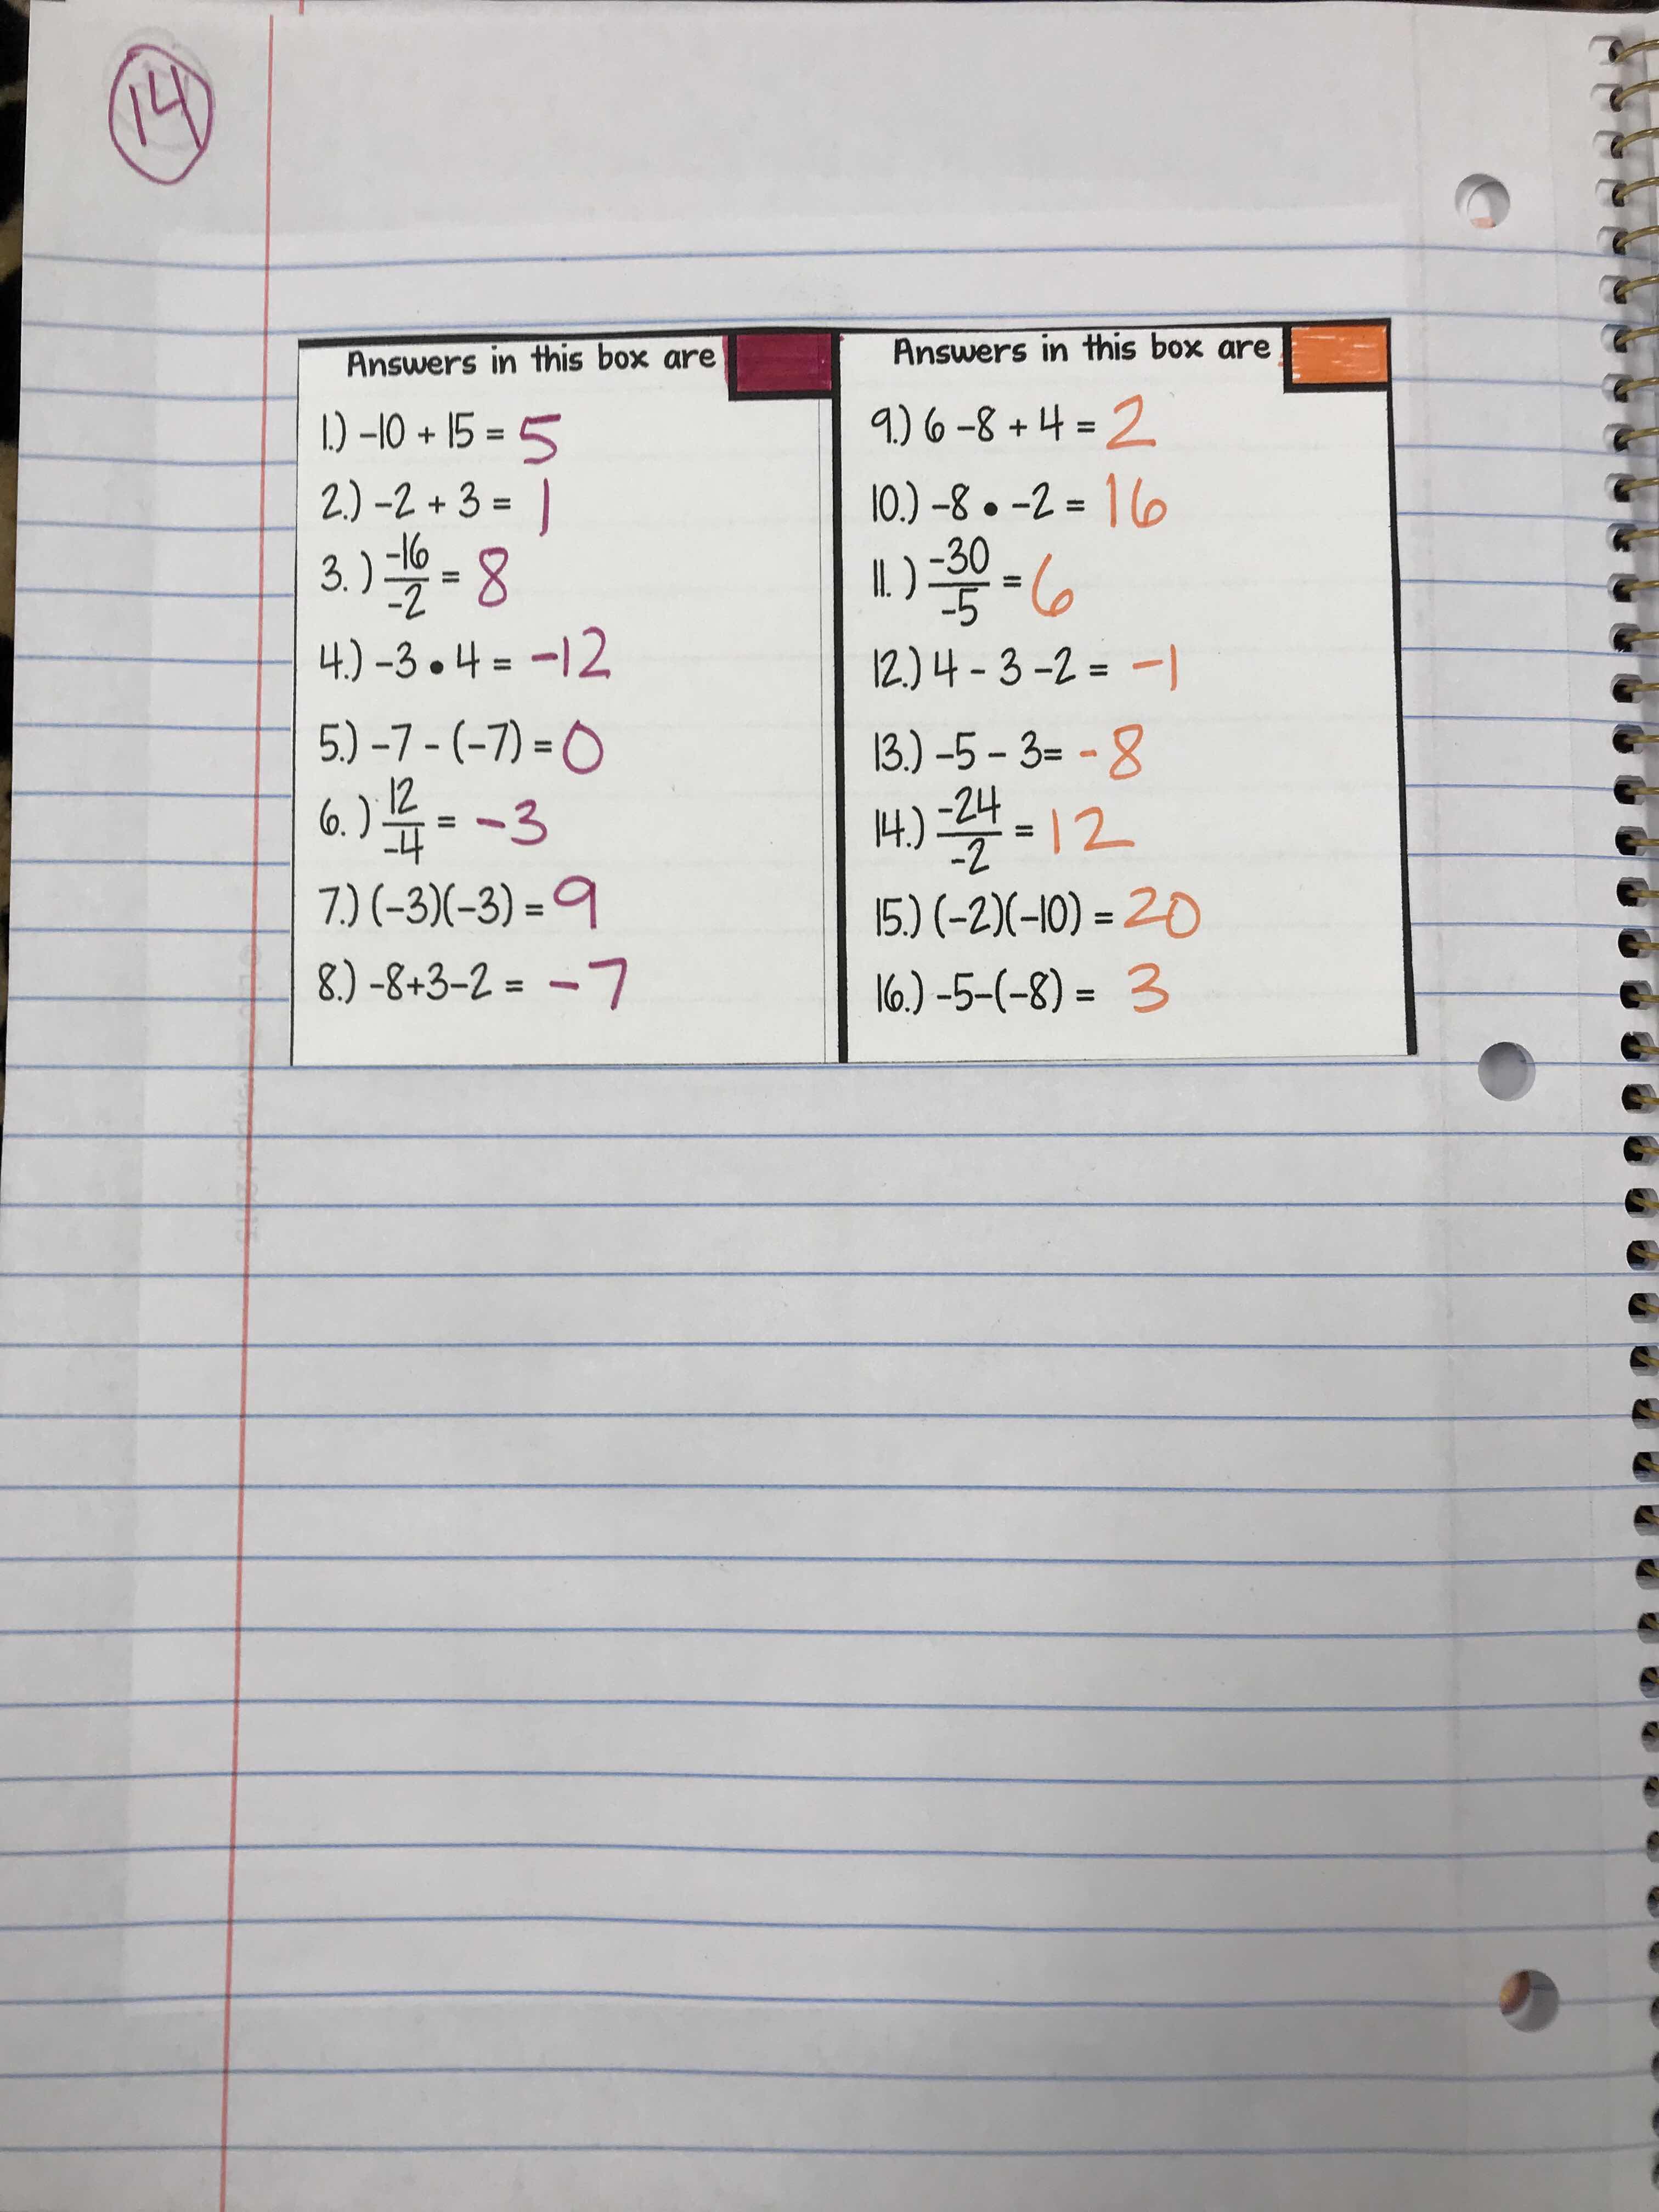 14
Answers in this box are
1.) -10 + 15 = 5
2.) -2 + 3 = 1
3.) -16/-2 = 8
4.) -3 • 4 = -12
5.) -7 - (-7) = 0
6.) 12/-4 = -3
7.) (-3)(-3) = 9
8.) -8+3-2 = -7
Answers in this box are
9.) 6 -8 + 4 = 2
10.) -8 • -2 = 16
11.) -30/-5 = 6
12.) 4 - 3 -2 = -1
13.) -5 - 3= -8
14.) -24/-2 = 12
15.) (-2)(-10) = 20
16.) -5-(-8) = 3